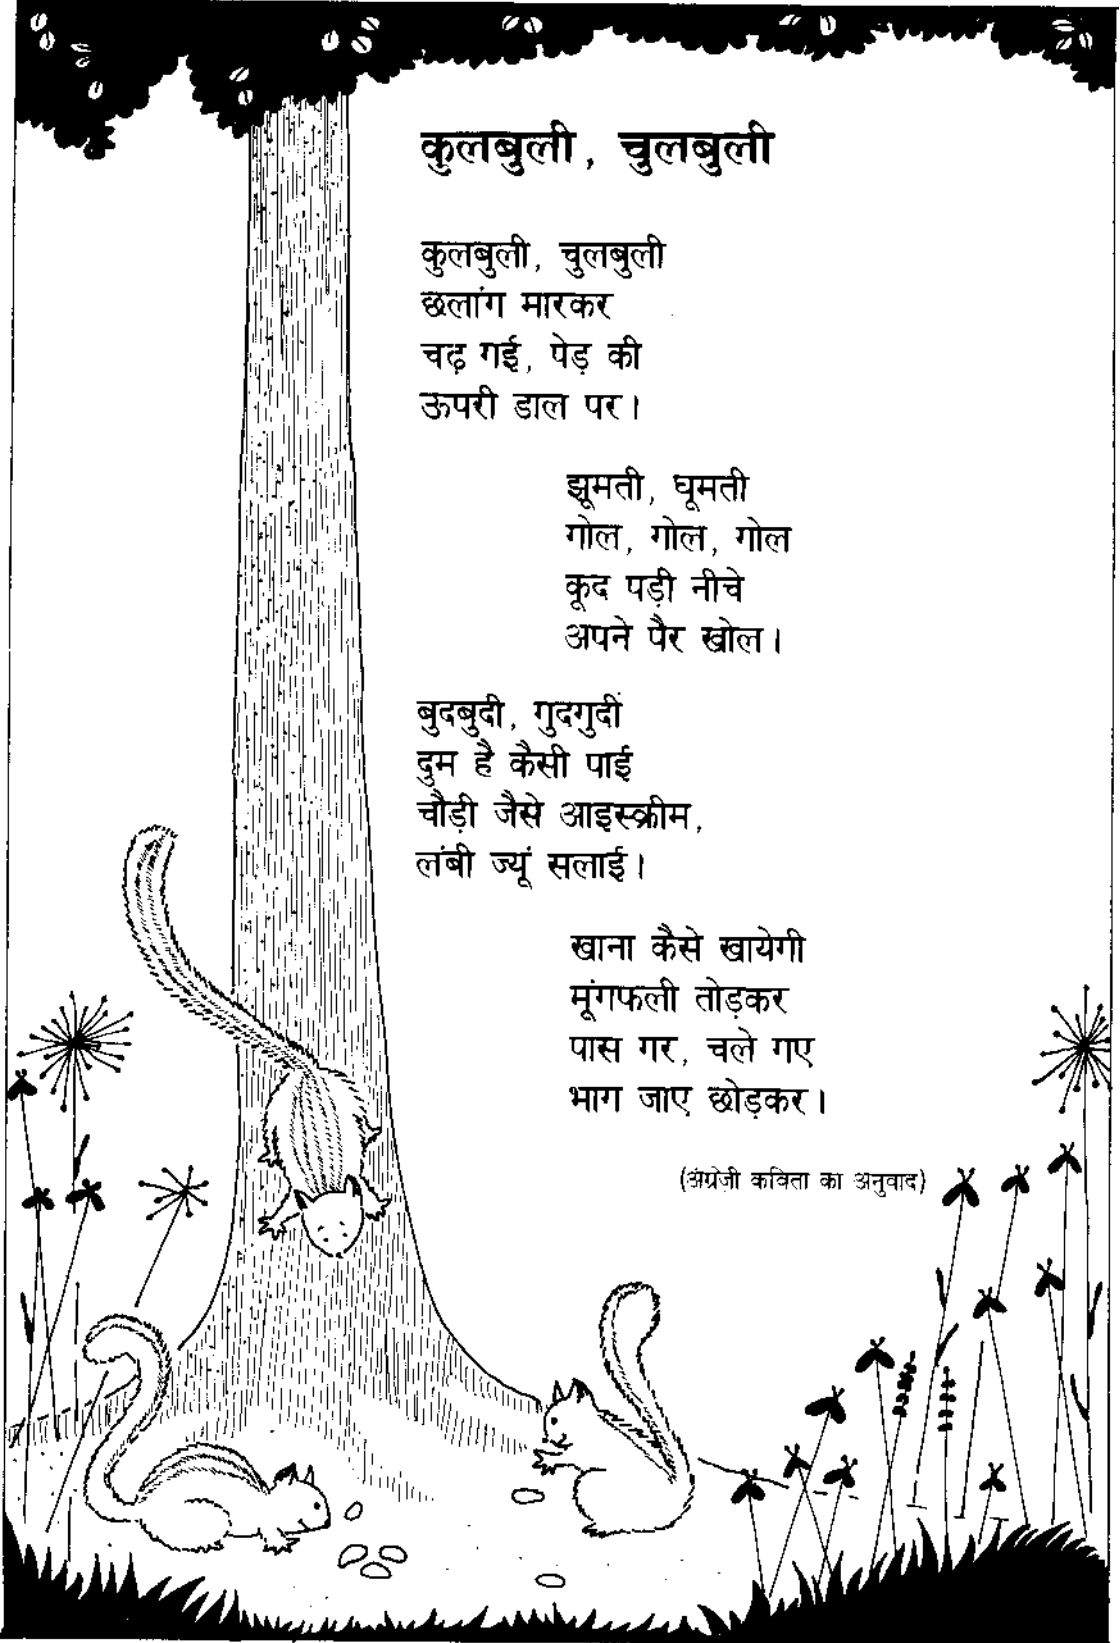 कुलबुली, चुलबुली
कुलबुली, चुलबुली
छलांग मारकर
चढ़ गई, पेड़ की
ऊपरी डाल पर।
झूमती, घूमती
गोल, गोल, गोल
कूद पड़ी नीचे
अपने पैर खोल।
बुदबुदी, गुदगुदी
दुम है कैसी पाई
चौड़ी जैसे आइस्क्रीम,
लंबी ज्यूं सलाई।
खाना कैसे खायेगी
मूंगफली तोड़कर
पास गर, चले गए
भाग जाए छोड़कर।
(अंग्रेज़ी कविता का अनुवाद)